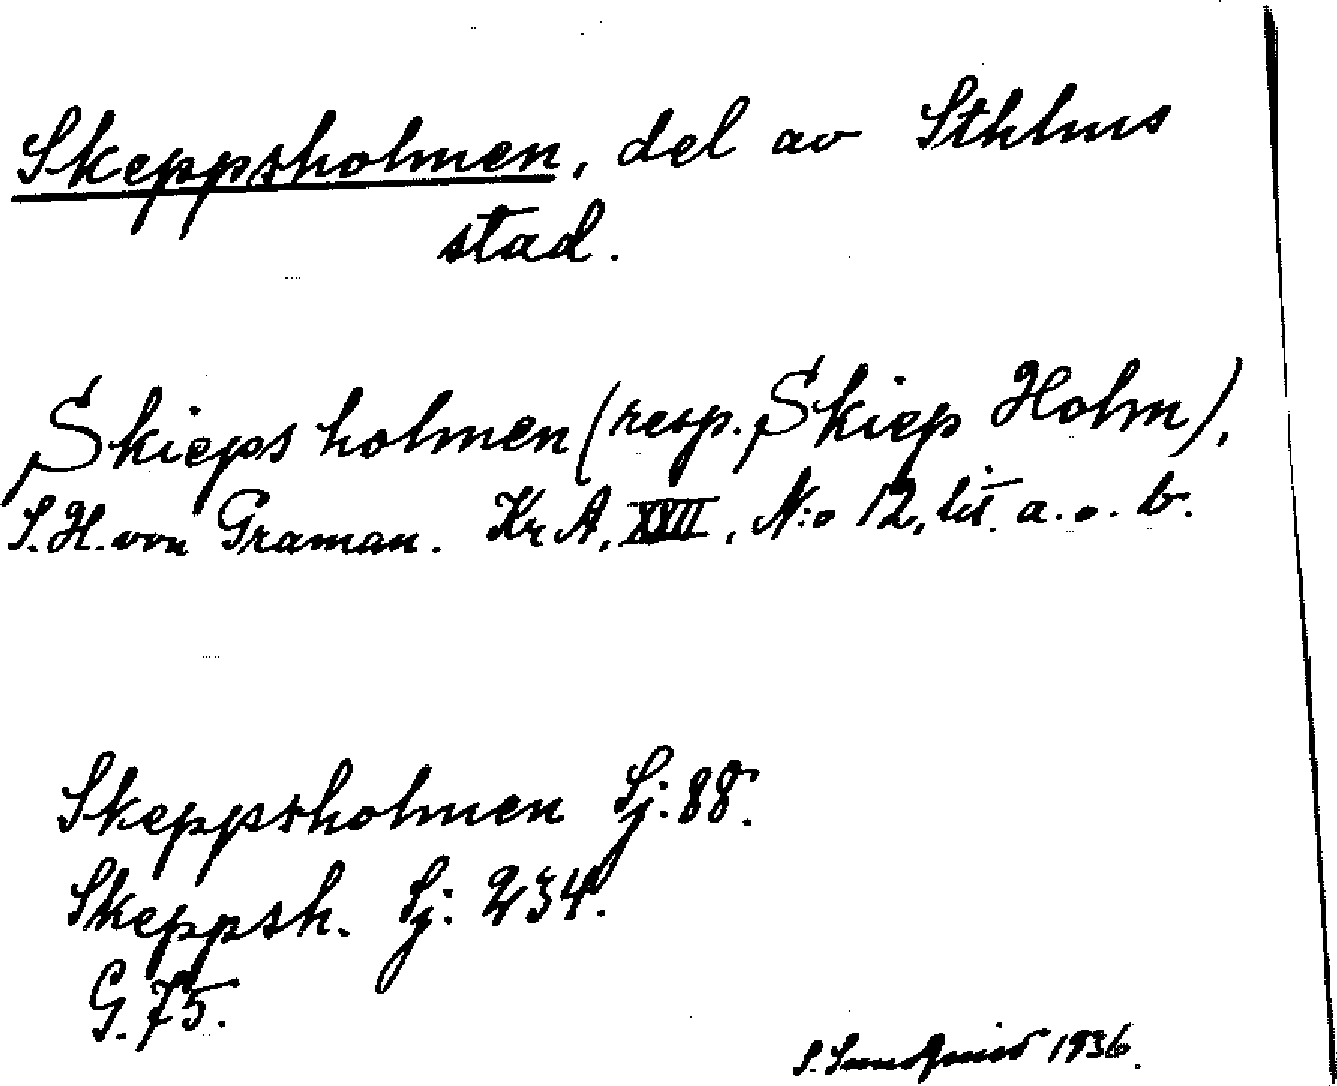 Skeppsholmen, del av Sthlms
stad.
Skieps holmen (resp. Skiep Holm),
S.H. von Graman. Kr A, XXII, N:o 12, lit. a. o. b.
Skeppsholmen Sj: 88.
Skeppsh. Sj: 234.
G. 75.
S. Sundqvist 1936.